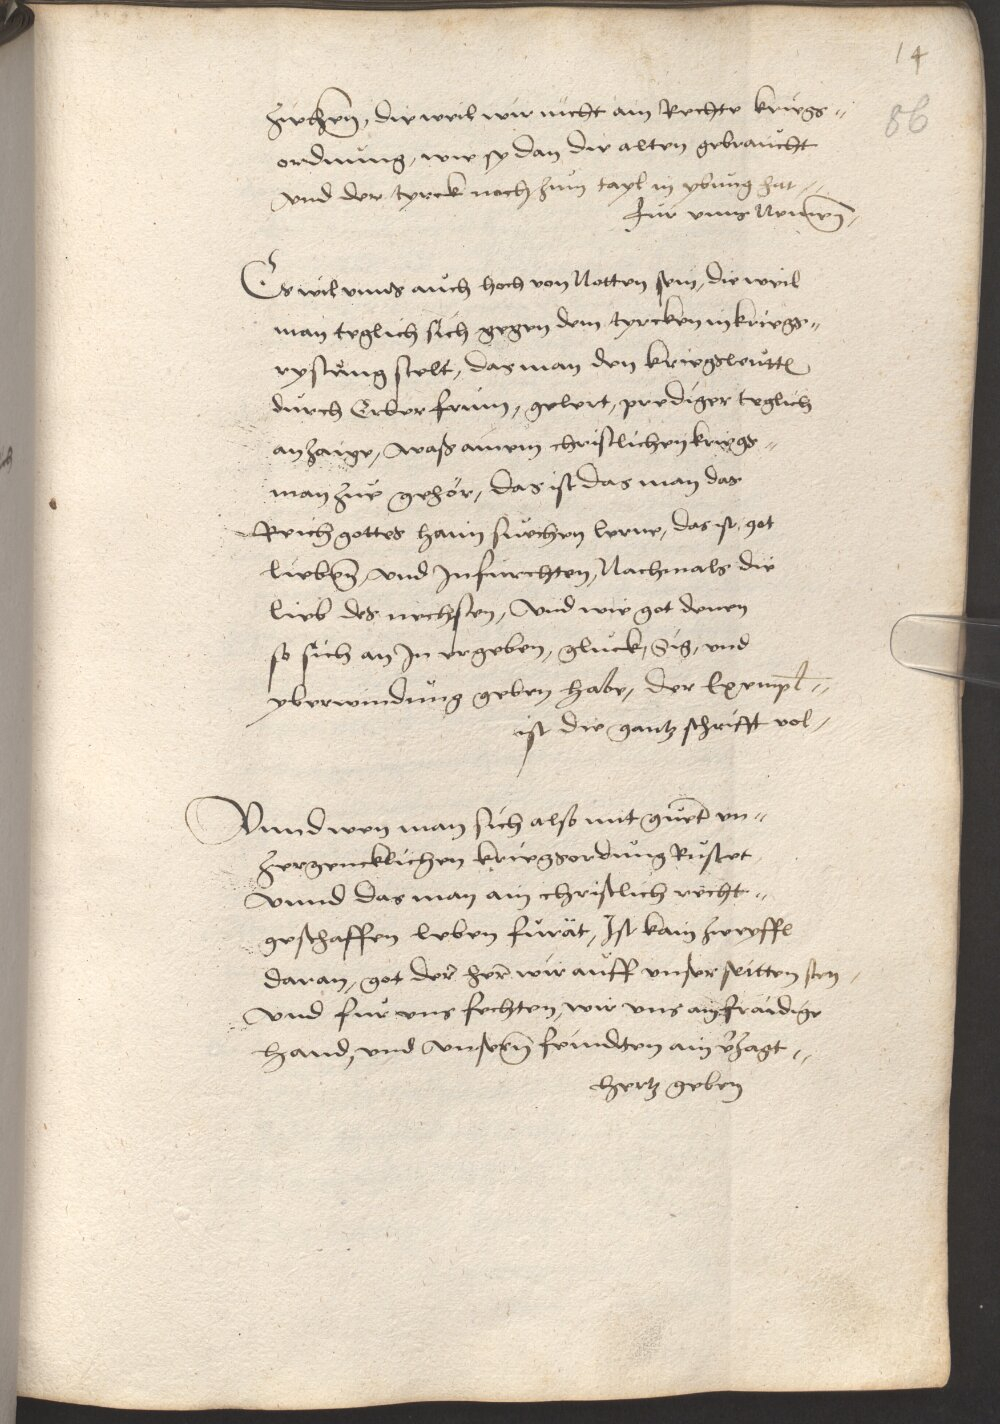 14
86
ziechen, die weil wir nicht ain Rechte kriegs-
ordnung, wie sy dan die alten gebraucht
vnd der tyrck noch zum tayl in ybung hat
fur vnns Nemen
Es wil vnns auch hoch von Notten sein, die weil
man teglich sich gegen dem tyrcken in kriegs-
rystung stelt, das man den kriegsleutten
durch Erber frum, gelert, prediger teglich
anzaige, was ainem christlichen kriegs-
man zue gehör, das ist das man das
Reich gottes haim suechen lerne, das ist, got
lieben, vnd In furchten, Nachmals die
lieb des nechsten, Vnd wie got denen
so sich an In ergeben, gluck, Sig, vnd
yberwindung geben habe, der Exempl
ist die gantz schrifft vol
Vnnd wen man sich also mit gueter vn-
zertrencklichen kriegsordnung Rustet
Vnnd das man ain christlich recht-
geschaffen leben fürät, Ist kain zweyffl
daran, got der her wir auff vnser seitten sten
Vnd fur vns fechten, wir vns ain fraidige
hand, vnd Vnsern feindten ain verzagt
hertz geben